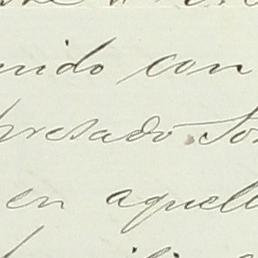 nido con
presado So
en aquell